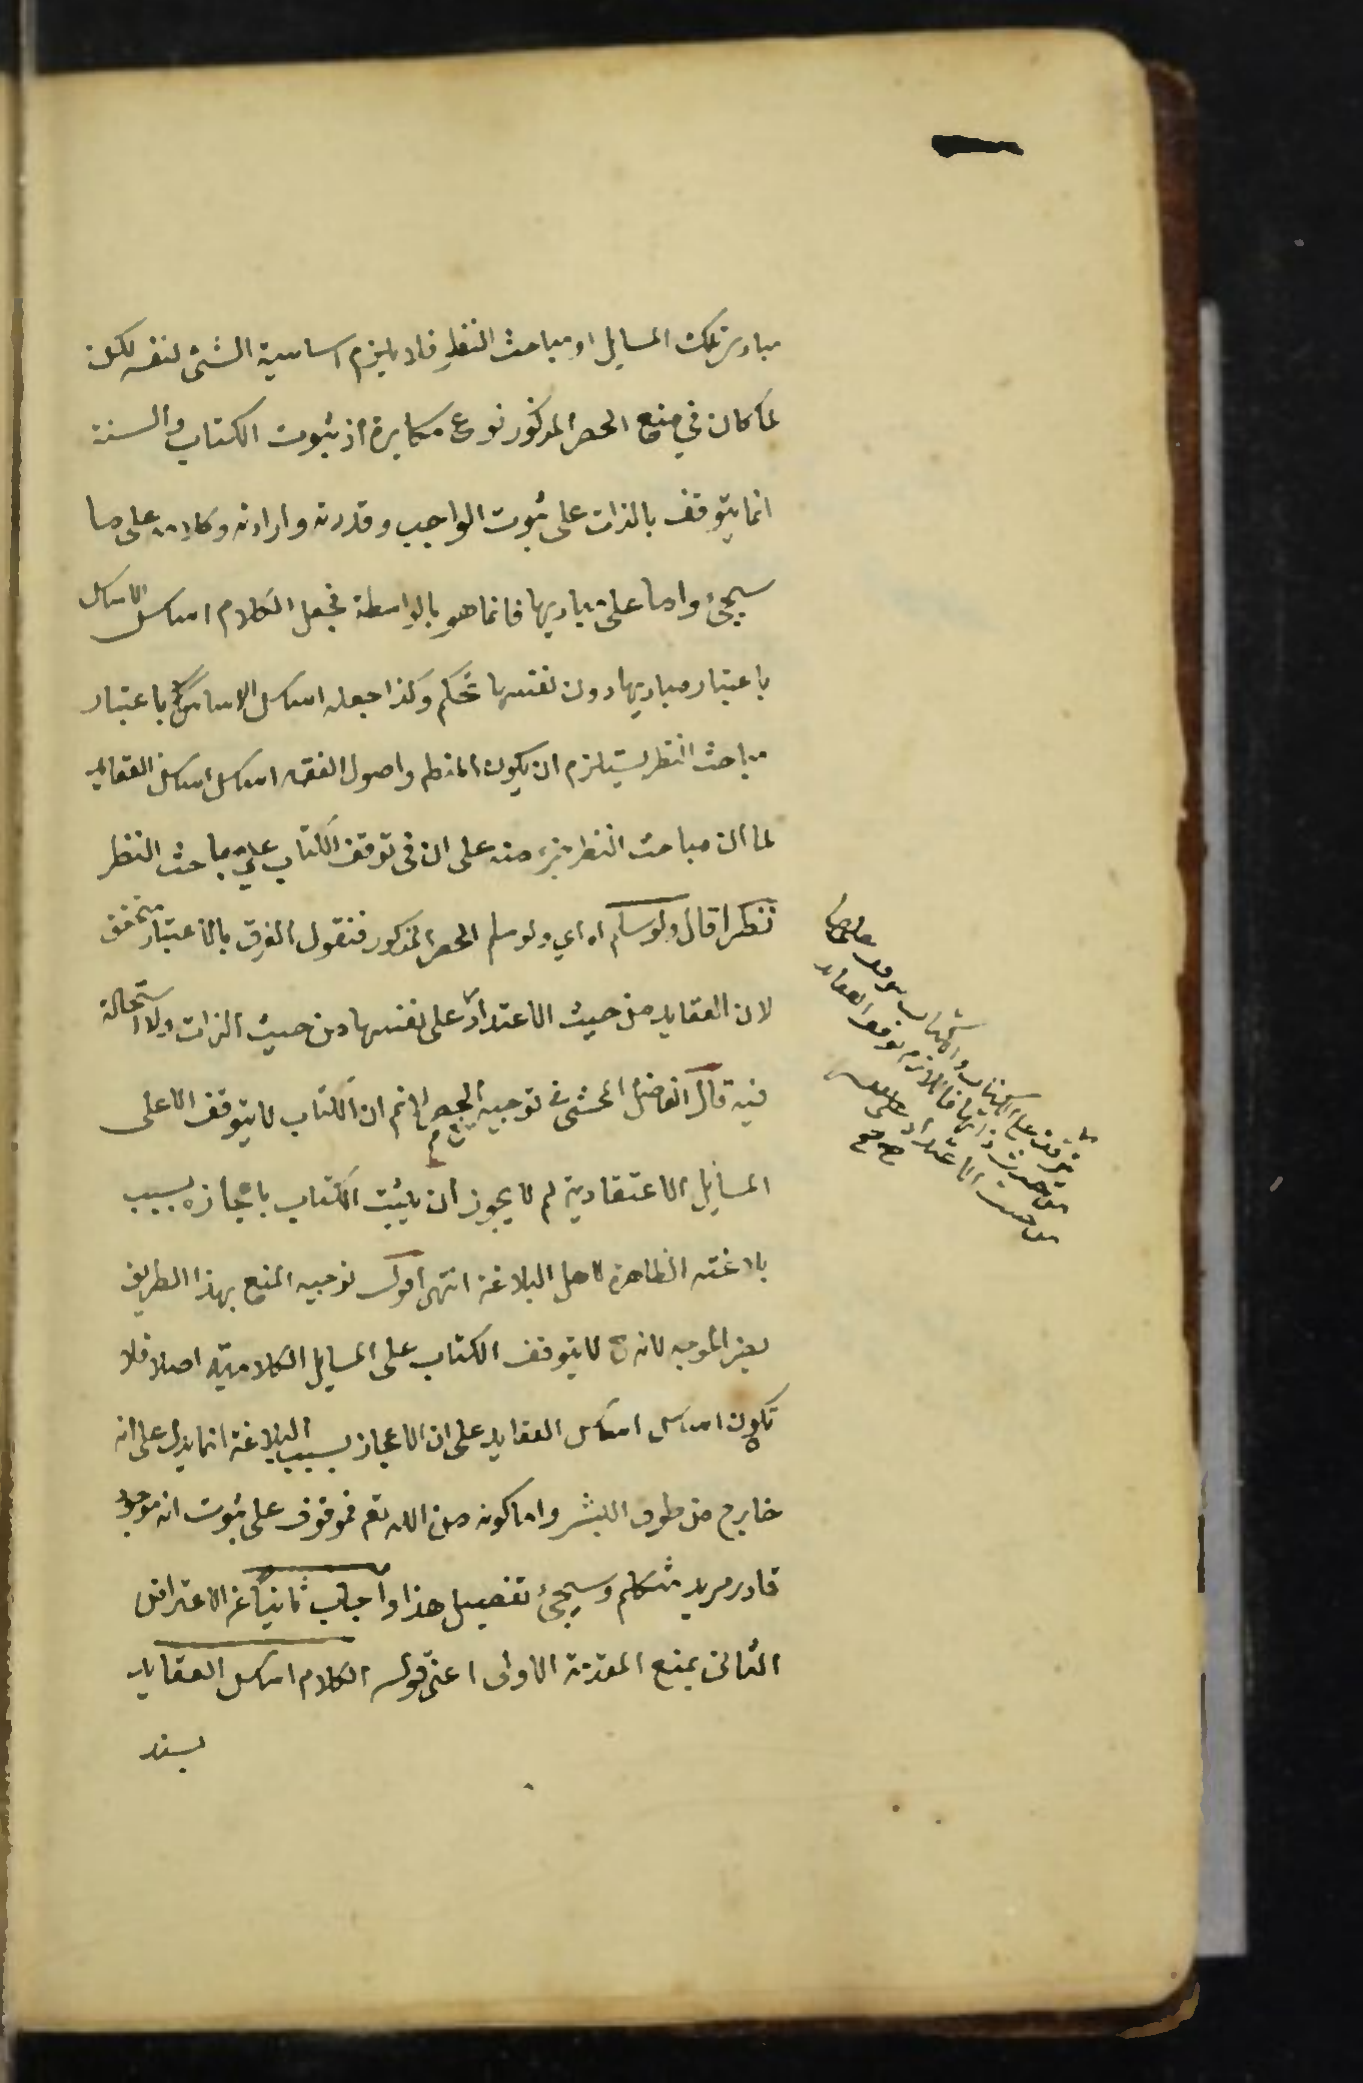 مبادى تلك المسايل او مباحث النظر فلا يلزم اساسية الشئ لنفسه لكن
لما كان في منع الحصر المذكور نوع مكابرة اذ ثبوت الكتاب والسنة
انما يتوقف بالذات على ثبوت الواجب وقدرته وارادته وكلامه على ما
سيجئ واما على مباديها فانما هو بالواسطة فجعل الكلام اساس الاساس
باعتبار مباديها دون نفسها تحكم وكذا جعله اساس الاساس باعتبار
مباحث النظر يستلزم ان يكون المنطق واصول الفقه اساس اساس العقايد
لما ان مباحث النظر جزء منه على ان في توقف الكتاب على مباحث النظر
نظرا قال ولو سلم اه اي ولو سلم الحصر المذكور فنقول الفرق بالاعتبار متحقق
لان العقايد من حيث الاعتداد على نفسها من حيث الذات ولا استحالة
فيه قال الفاضل المحشى في توجيه الحصر لانم ان الكتاب لا يتوقف الا على
المسايل الاعتقادية لم لا يجوز ان يثبت الكتاب باعجازه بسبب
بلاغته الظاهرة لاهل البلاغة انتهى اقول توجيه المنع بهذا الطريق
بغير الموجه لانه ح لا يتوقف الكتاب على المسايل الكلامية اصلا فلا
تكون اساس اساس العقايد على ان الاعجاز بسبب البلاغة انما يدل على انه
خارج من طوق البشر واما كونه من الله تع فموقوف على ثبوت انه موجود
قادر مريد متكلم وسيجئ تفصيل هذا واجاب ثانيا عن الاعتراض
الثانى بمنع المقدمة الاولى اعنى قوله الكلام اساس العقايد
بسند
يتوقف على الكتاب والكتاب يتوقف على
من حيث ذاتها فاللازم توقف العقايد
من حيث الاعتداد على نفسه
صح